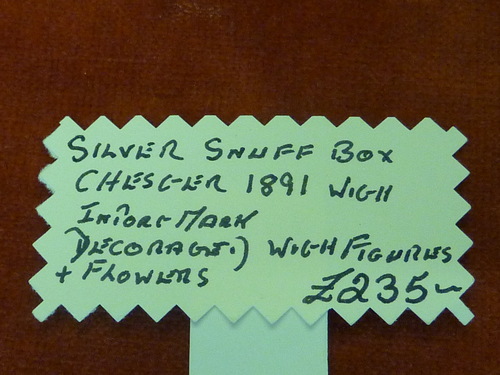 SILVER SNUFF BOX
CHESTER 1891 WITH
IMPORT MARK
(DECORATED) WITH FIGURES
+ FLOWERS
£235~